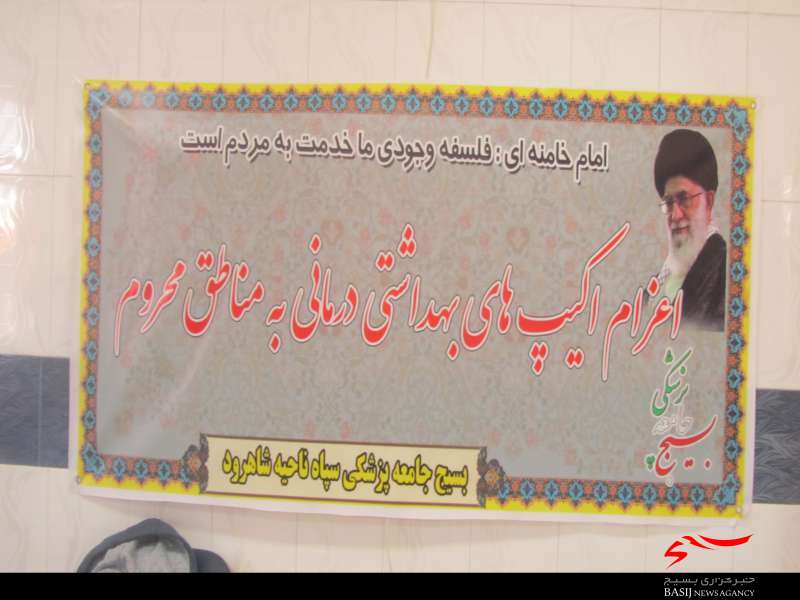 امام خامنه ای : فلسفه وجودی ما خدمت به مردم است
اعزام اکیپ های بهداشتی درمانی به مناطق محروم
بسیج جامعه پزشکی
بسیج جامعه پزشکی سپاه ناحیه شاهرود
بسیج
خبرگزاری بسیج
BASIJ NEWS AGANCY